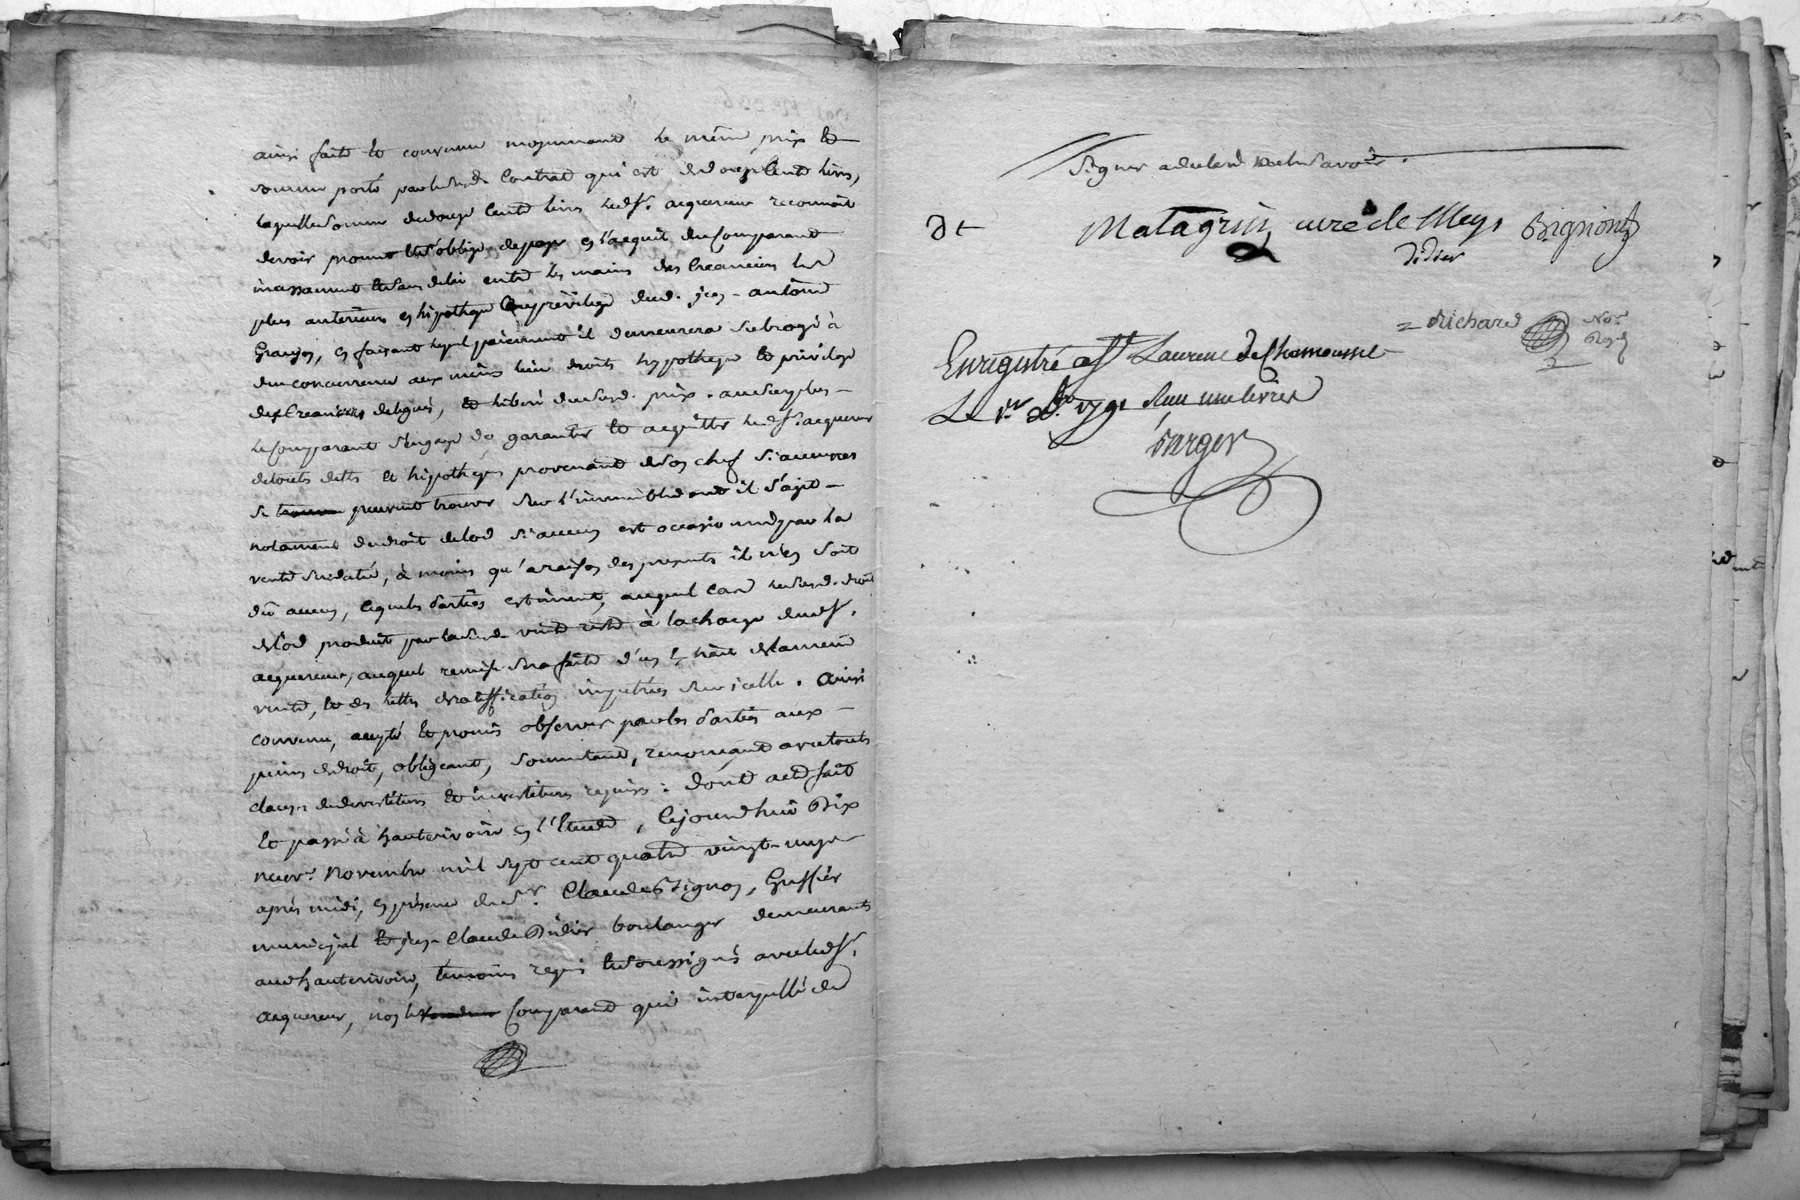 ainsi faite et convenue moyennant le même prix et
somme porté par le susd. Contrat qui est de douze Cents livres,
laquelle somme de douze Cents livres led. Sr. acquereur reconnoit
devoir promet et s'oblige de payer en l'acquit du Comparant
incessament et sans delai entre les mains des Creanciers les
plus anterieurs en hipotheque et privilege dud. jean-antoine
Granjon, en faisant lequel paiement il demeurera subrogé à
due concurrence aux mêmes lieu droits hypotheque et privilege
des Creanciers delegués, et liberé du susd. prix. au surplus
le Comparant s'engage de garantir et acquitter led. Sr. acquereur
de touts dettes et hipotheques provenant de son chef si aucunes
se peuvent trouver sur l'immeuble dont il s'agit
notament du droit de lod si aucun est occasionné par la
vente sus datée, à moins qu'a raison des presentes il n'en soit
dû aucun, lesquels parties estiment, auquel cas le susd. droit
de lod produit par la susd. vente reste à la charge dud. Sr.
acquereur, auquel remise sera faite d'un Extrait de la même
vente, et des lettres de ratification impetrées sur icelle. Ainsi
convenu, accepté et promis observer par les parties aux
peines de droit, obligeant, soumettant, renonçant avec touts
clauses de devestiture et investiture requises: dont acte fait
et passé à hauterivoire en l'Etude, Cejourd'hui Dix
neuv. Novembre mil sept cent quatre vingt-onze
après midi, en présence de Sr. Claude Brignon, Greffier
municipal et jean Claude Didier boulanger demeurants
aud. hauterivoire, témoins requis et soussignés avec led. Sr.
acquereur, non le Comparant qui interpellé de
signer a declaré ne le savoir.
Dt
Matagrin curé de Meys Brignon
Didier
= Richard Nore
Roy
Enregistré a St Laurent de Chamousset
Le 1er Xbre 1791 Reçu une livre
Darger